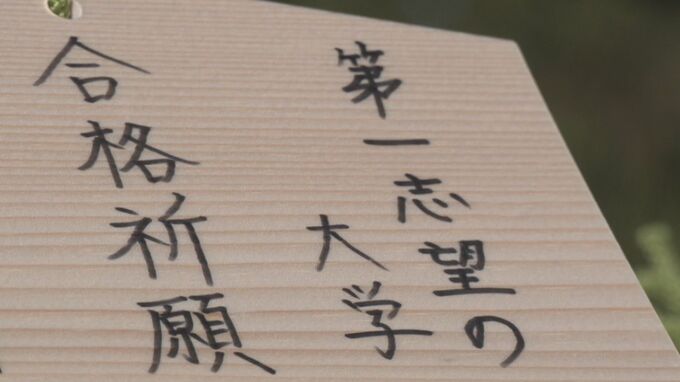 第一志望の
大学
合格祈願